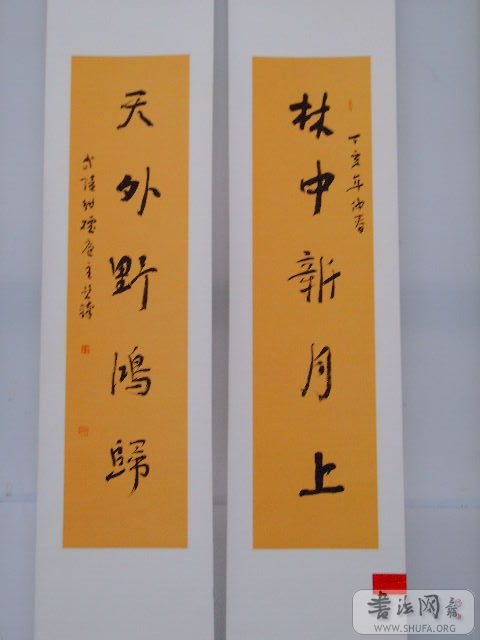 林中新月上
丁亥年仲春
天外野鴻歸
書法网
WWW.SHUFA.ORG